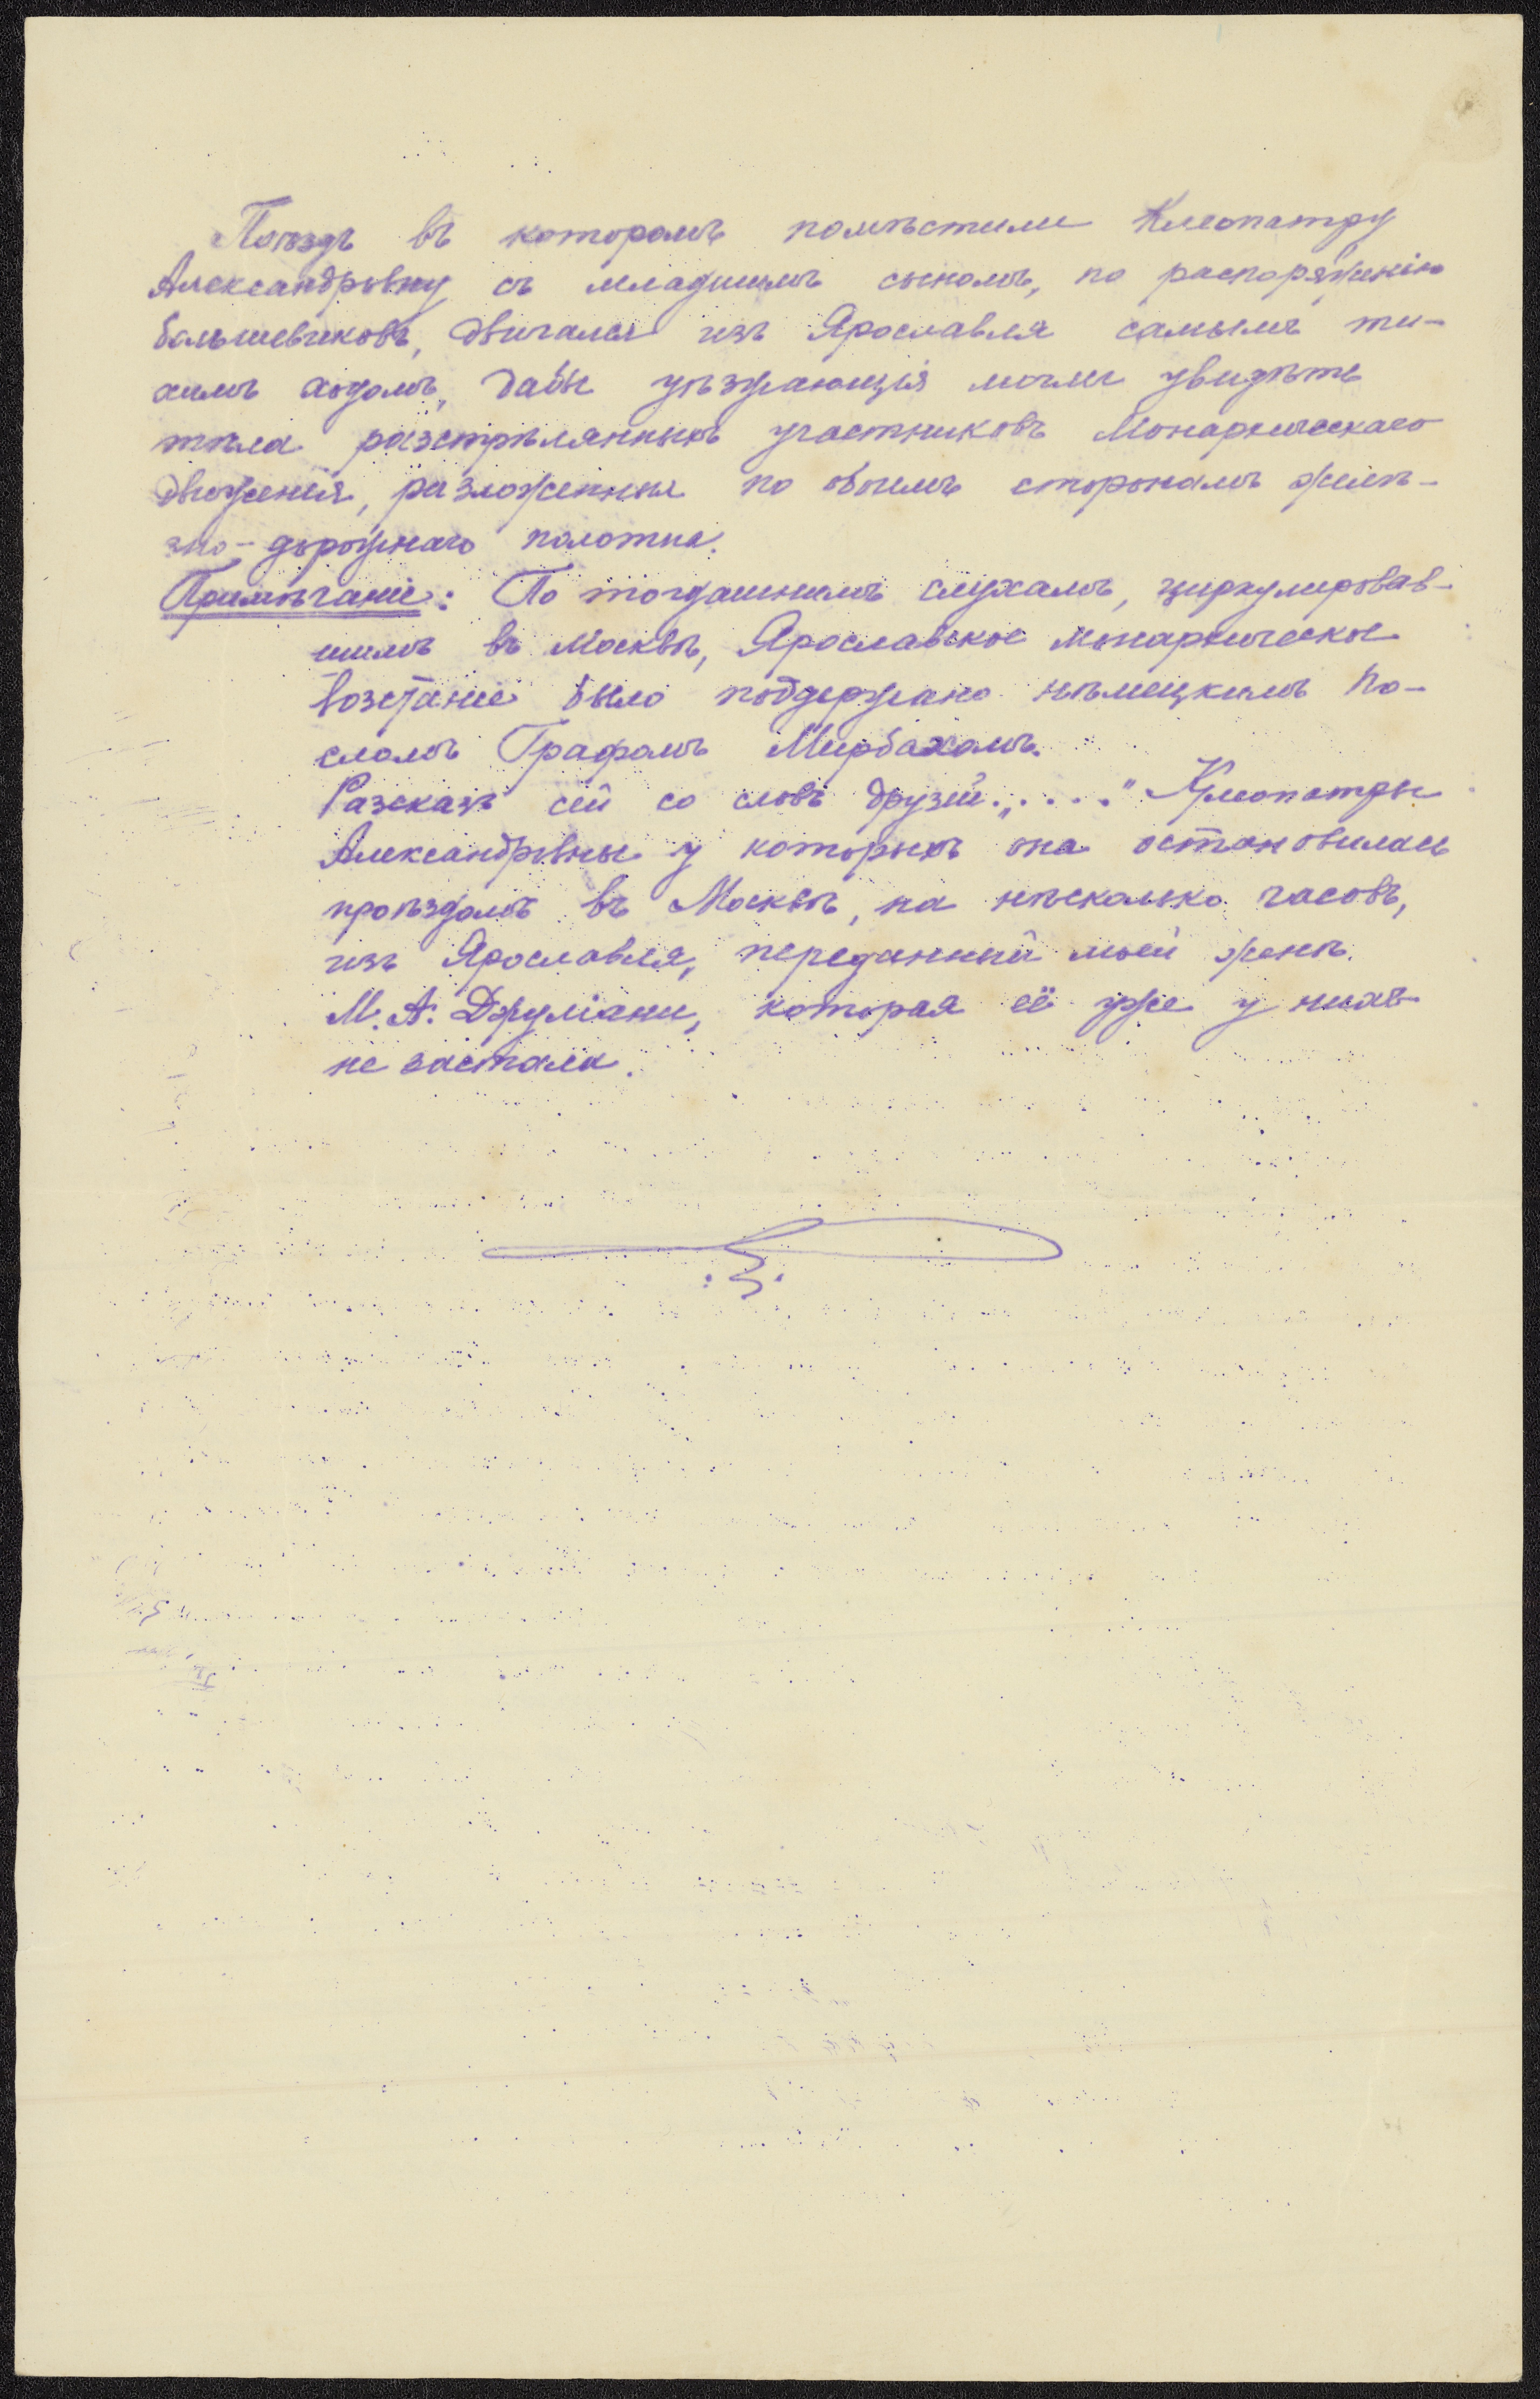 Поѣздъ въ которомъ помѣстили Клеопатру
Александровну съ младшимъ сыномъ, по распоряженію
большевиковъ, двигался изъ Ярославля самымъ ти-
химъ ходомъ, дабы уѣзжающія могли увидѣть
тѣла разстрѣлянныхъ участниковъ Монархическаго
движенія, разложенныя по обоимъ сторонамъ желѣ-
зно-дорожнаго полотна.
Примѣчаніе: По тогдашнимъ слухамъ, циркулировав-
шимъ въ Москвѣ, Ярославское монархическое
возстаніе было поддержано нѣмецкимъ По-
сломъ Графомъ Мирбахомъ.
Разсказъ сей со словъ друзей „....." Клеопатры
Александровны у которыхъ она остановилась
проѣздомъ въ Москвѣ, на нѣсколько часовъ,
изъ Ярославля, переданный моей женѣ.
М. А. Джуліани, которая её уже у нихъ
не застала.